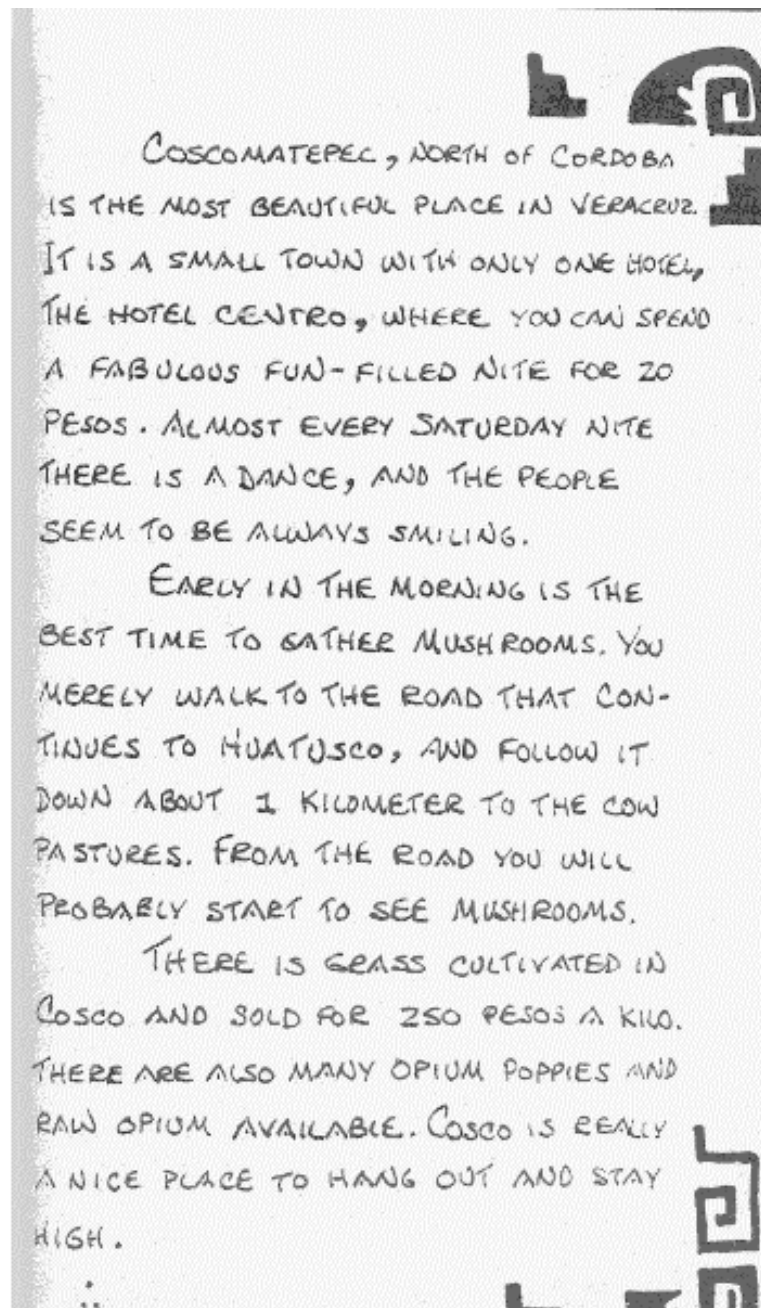 COSCOMATEPEC, NORTH OF CORDOBA
IS THE MOST BEAUTIFUL PLACE IN VERACRUZ.
IT IS A SMALL TOWN WITH ONLY ONE HOTEL,
THE HOTEL CENTRO, WHERE YOU CAN SPEND
A FABULOUS FUN-FILLED NITE FOR 20
PESOS. ALMOST EVERY SATURDAY NITE
THERE IS A DANCE, AND THE PEOPLE
SEEM TO BE ALWAYS SMILING.
EARLY IN THE MORNING IS THE
BEST TIME TO GATHER MUSHROOMS. YOU
MERELY WALK TO THE ROAD THAT CON-
TINUES TO HUATUSCO, AND FOLLOW IT
DOWN ABOUT 1 KILOMETER TO THE COW
PASTURES. FROM THE ROAD YOU WILL
PROBABLY START TO SEE MUSHROOMS.
THERE IS GRASS CULTIVATED IN
COSCO AND SOLD FOR 250 PESOS A KILO.
THERE ARE ALSO MANY OPIUM POPPIES AND
RAW OPIUM AVAILABLE. COSCO IS REALLY
A NICE PLACE TO HANG OUT AND STAY
HIGH.